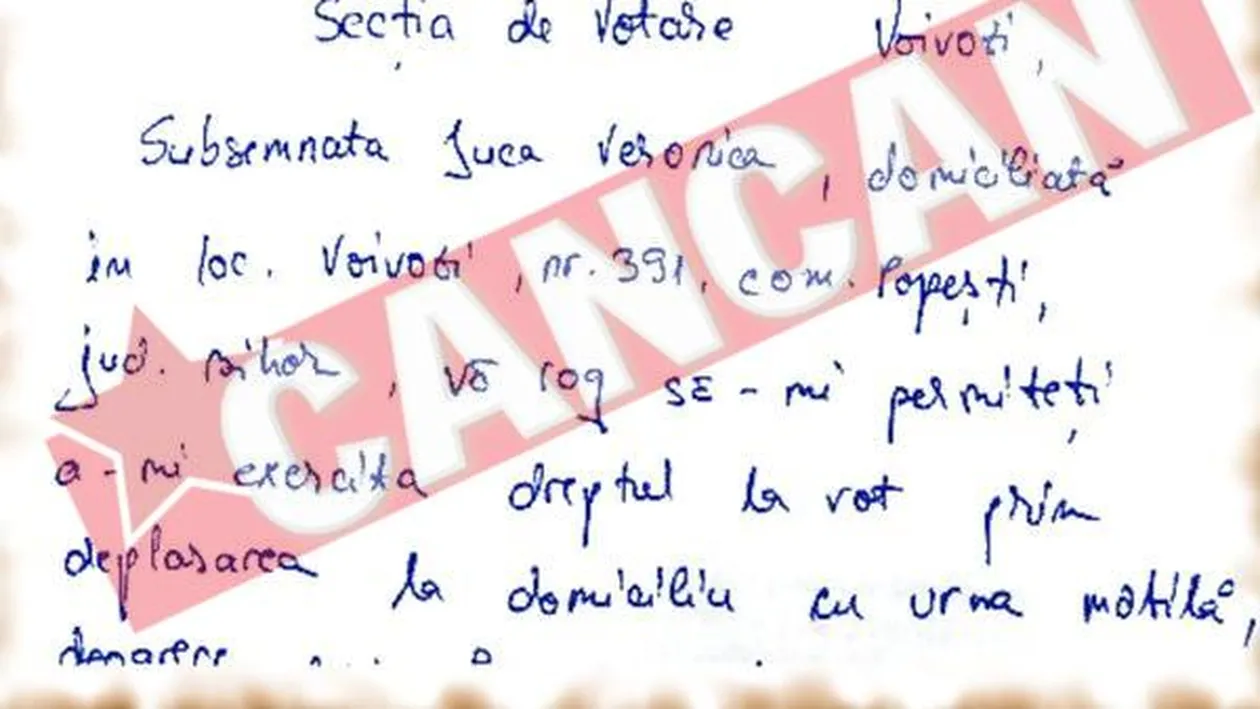 Secția de votare Voivozi,
Subsemnata Juca Veronica, domiciliată
in loc. Voivozi, nr. 391, com. Popești,
jud. Bihor, vă rog se-mi permiteți
a-mi exercita dreptul la vot prin
deplasarea la domiciliu cu urna mobilă,
deoarece
CANCAN